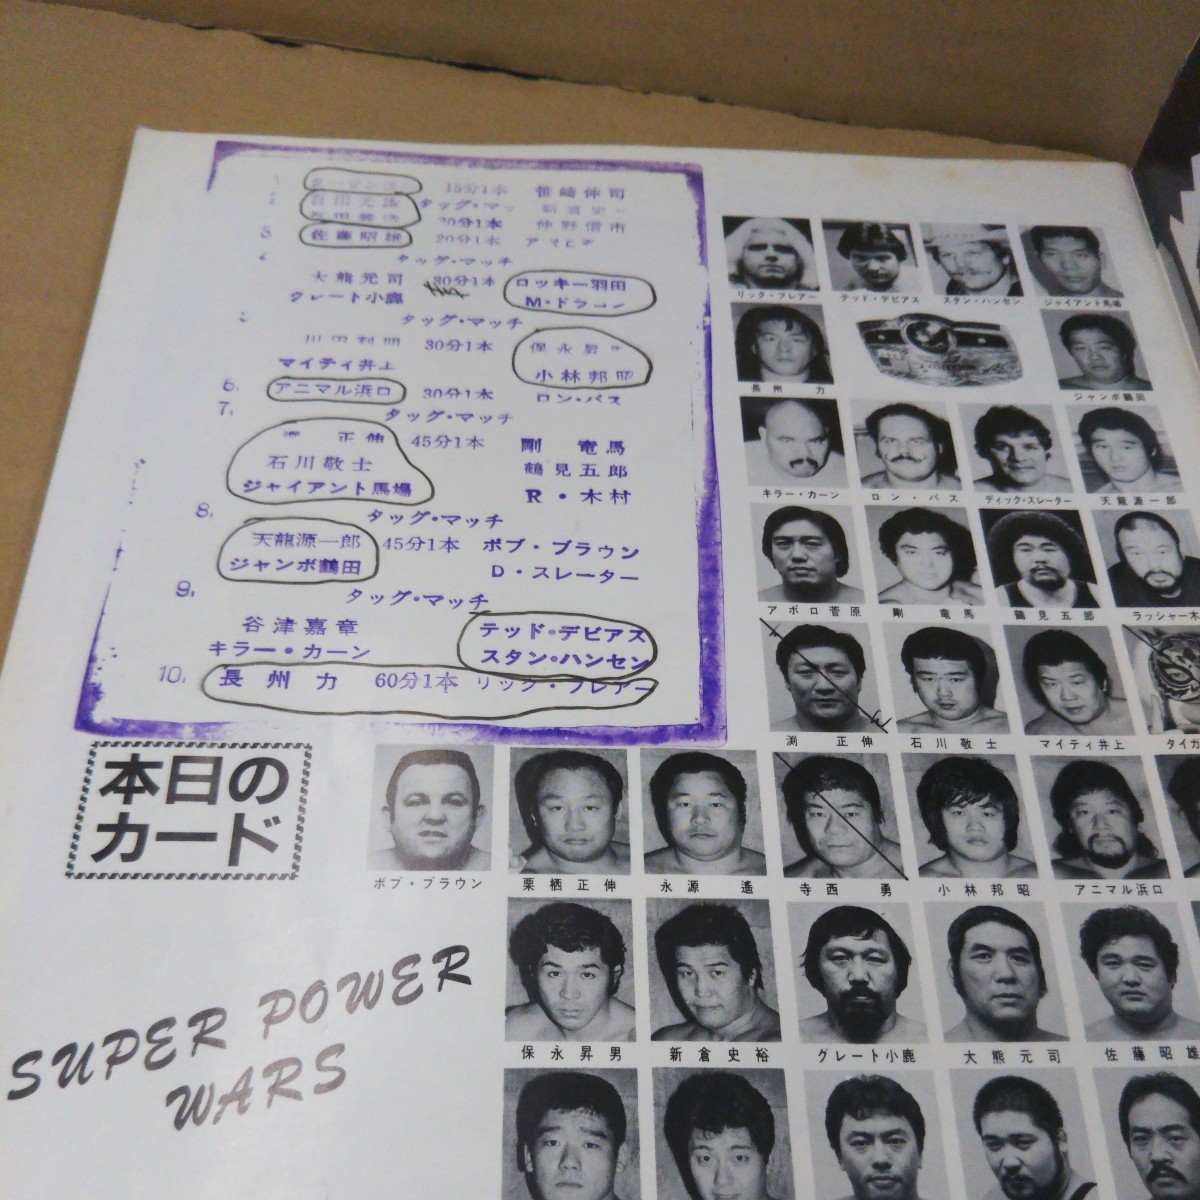 15分1本 笹崎伸司
百田光雄 タッグ・マッ 新倉史
20分1本 仲野信市
3. 佐藤昭雄 20分1本
タッグ・マッチ
大熊元司 30分1本 ロッキー羽田
グレート小鹿 M・ドラゴン
タッグ・マッチ
川田利明 30分1本 保永昇
マイティ井上 小林邦昭
6. アニマル浜口 30分1本 ロン・バス
7. タッグ・マッチ
渕 正伸 45分1本 剛 竜馬
石川敬士 鶴見五郎
ジャイアント馬場 R・木村
8. タッグ・マッチ
天龍源一郎 45分1本 ボブ・ブラウン
ジャンボ鶴田 D・スレーター
9. タッグ・マッチ
谷津嘉章 テッド・デビアス
キラー・カーン スタン・ハンセン
10. 長州力 60分1本 リック・フレアー
本日の
カード
SUPER POWER
WARS
リック・フレアー テッド・デビアス スタン・ハンセン ジャイアント馬場
長州力 ジャンボ鶴田
キラー・カーン ロン・バス ディック・スレーター 天龍源一郎
アポロ菅原 剛竜馬 鶴見五郎 ラッシャー木
渕正伸 石川敬士 マイティ井上 タイガ
ボブ・ブラウン 栗栖正伸 永源遙 寺西勇 小林邦昭 アニマル浜口
保永昇男 新倉史裕 グレート小鹿 大熊元司 佐藤昭雄